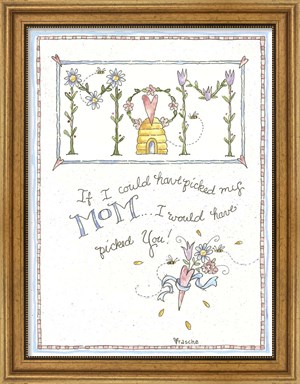 MOM
If I could have picked my
MOM... I would have
picked You!